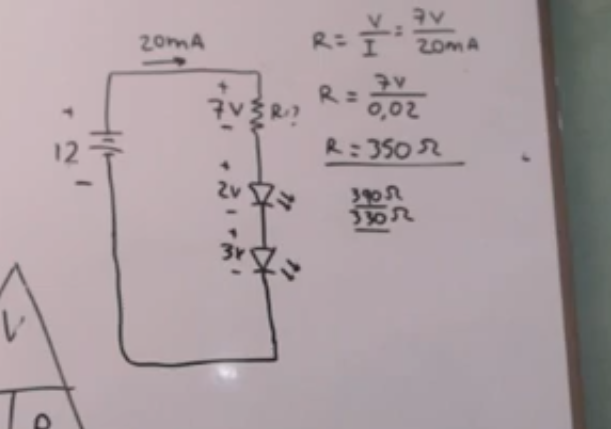 20mA
+
7V R?
-
+
12
-
+
2V
-
+
3V
-
R = V/I = 7V/20mA
R = 7V/0,02
R = 350 Ω
390Ω
330Ω
V
I R